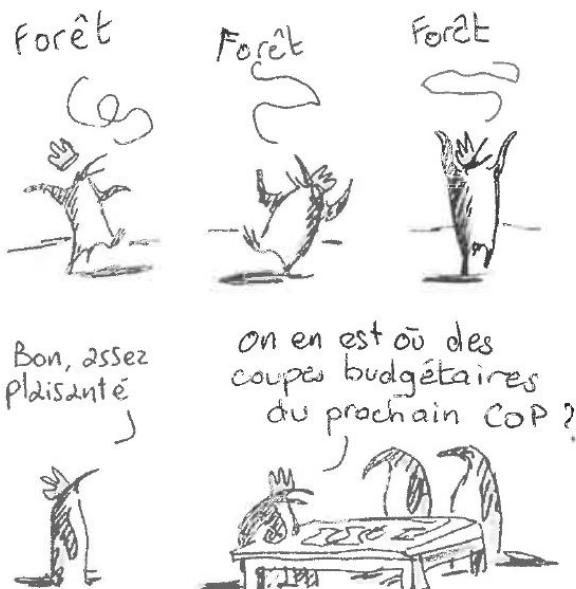 Forêt
Forêt
Forêt
Bon, assez
plaisanté
On en est où des
coupes budgétaires
du prochain COP ?